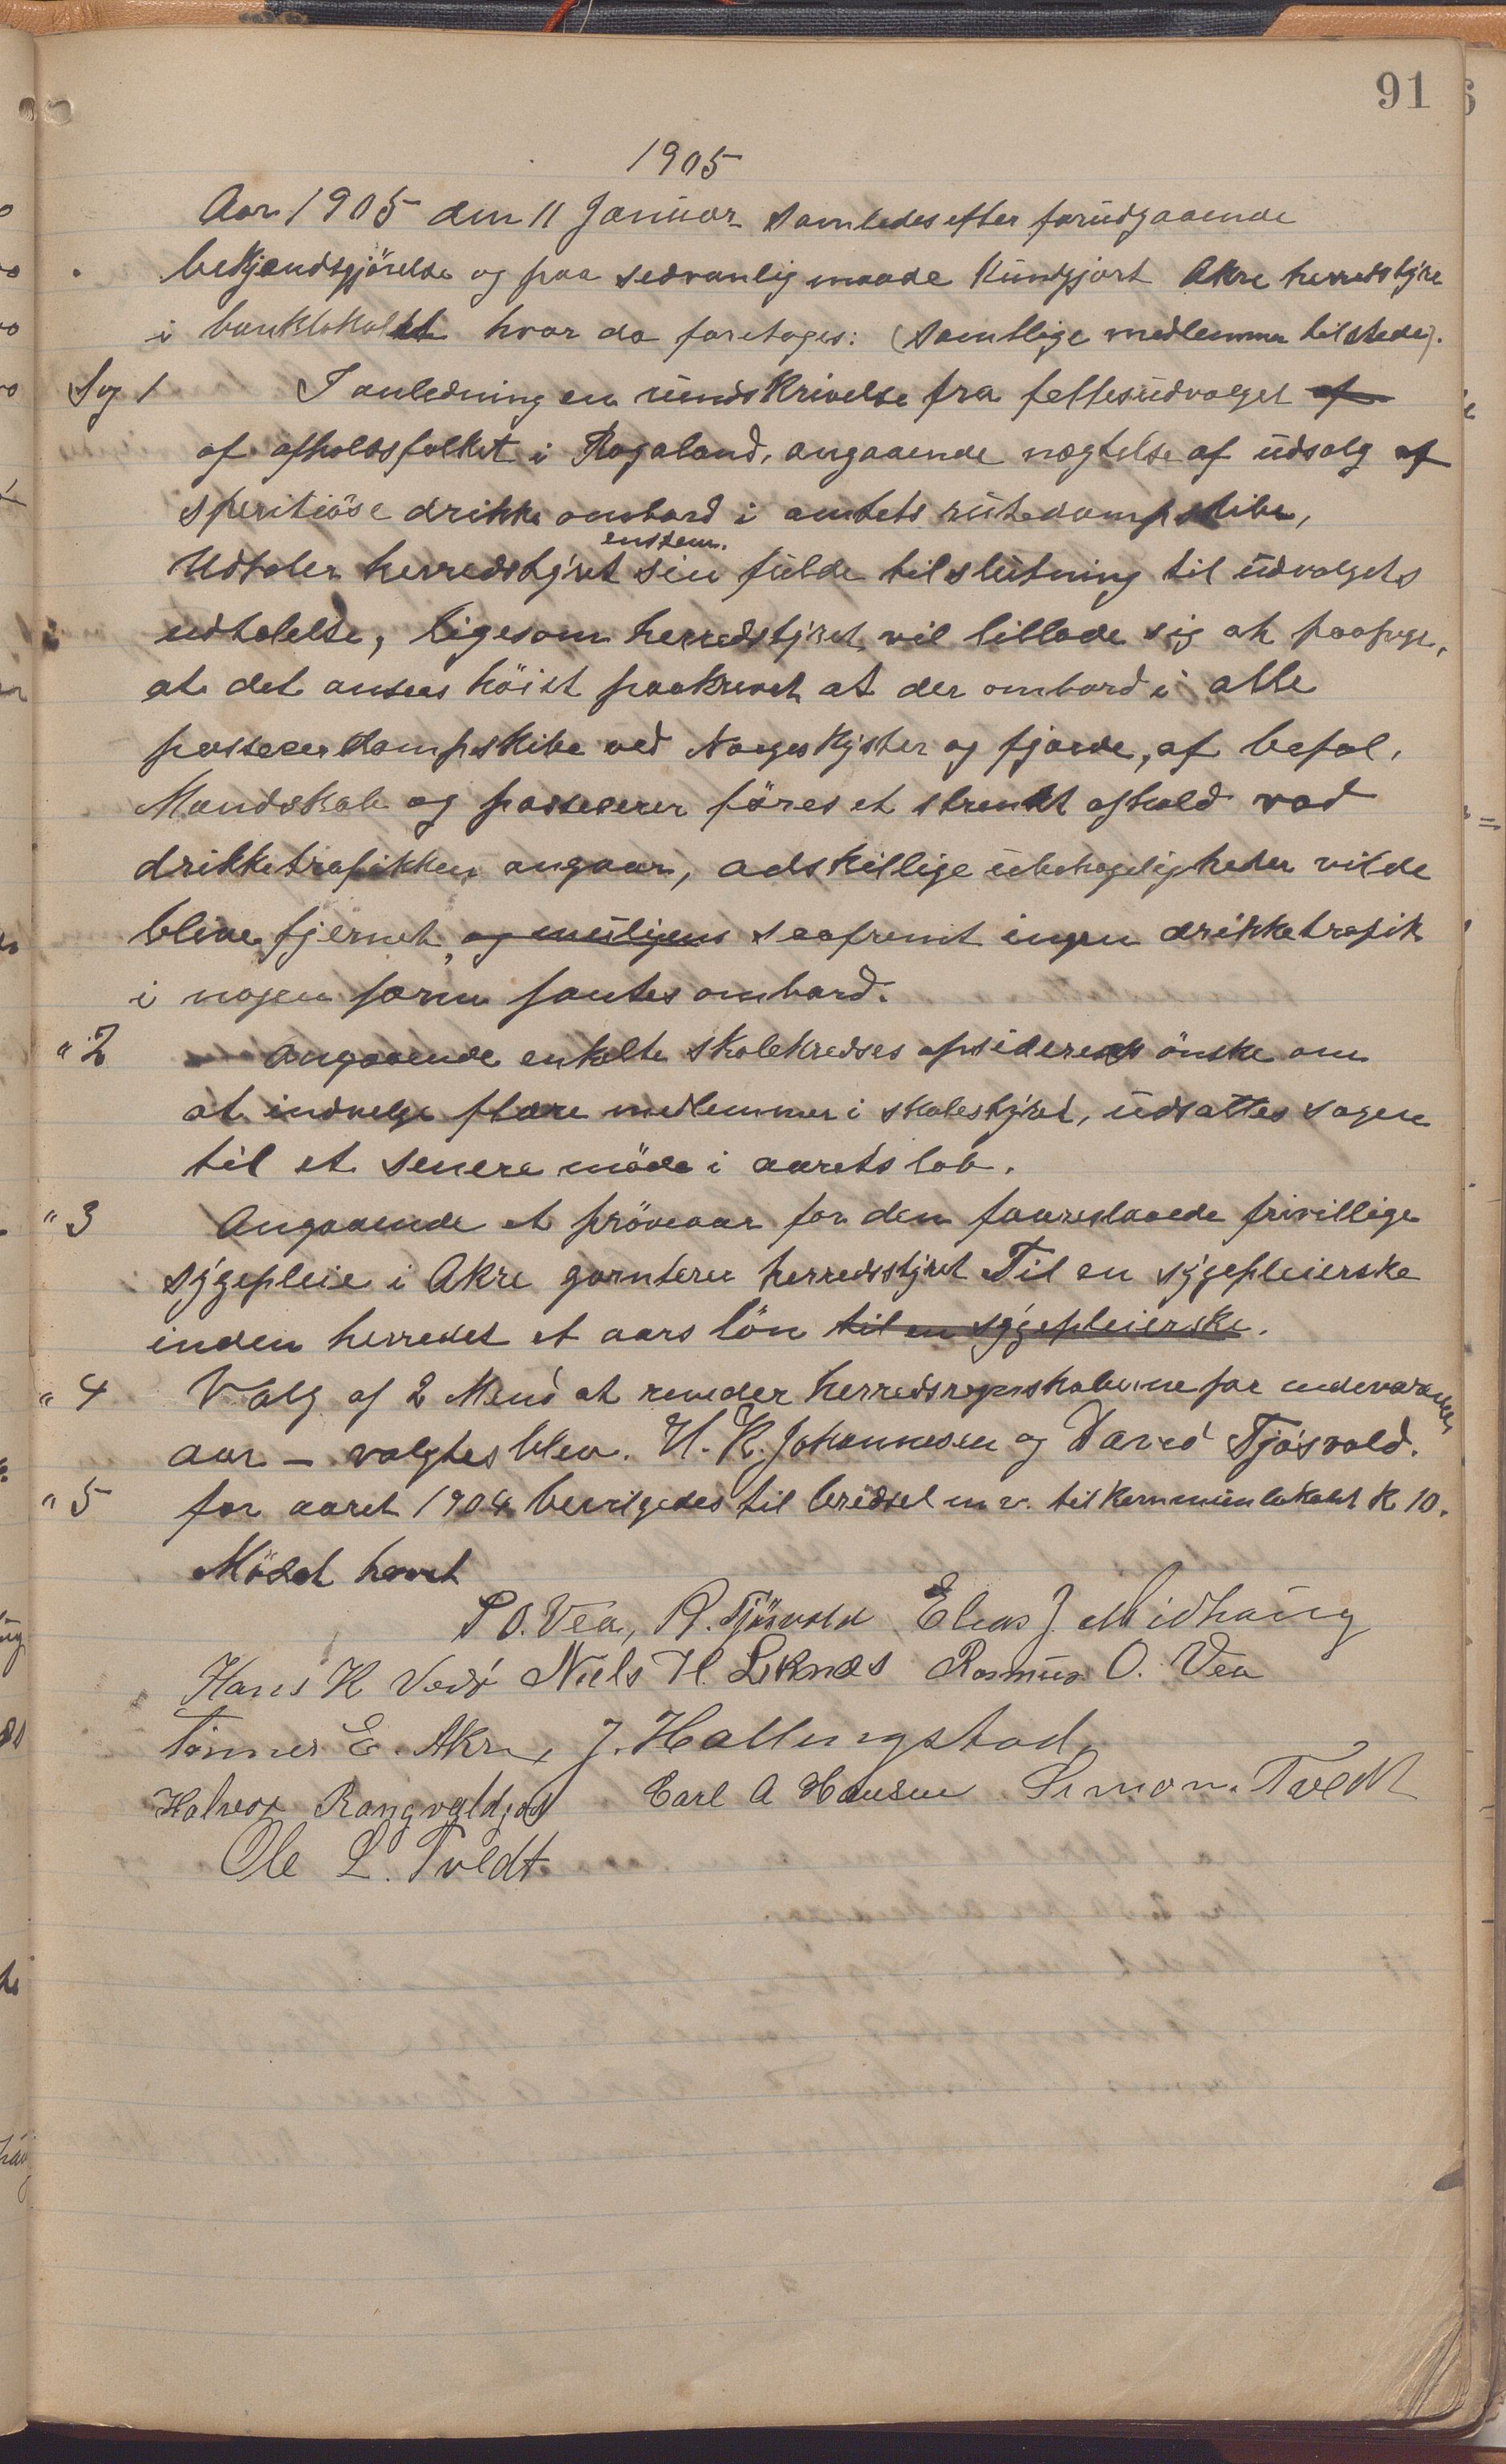 91
1905
Aar 1905 den 11 Januar samledes efter forudgaaende
bekjendtgjörelse og paa sedvanlig maade kundgjort Akre herredstyre
i banklokalet hvor da foretoges: (samtlige medlemmer tilstede).
Sag 1 I anledning en rundskrivelse fra fellesudvalget af
af afholdsfolket i Rogaland, angaaende nægtelse af udsalg af
speritiöse drikke ombord i amtets rutedampskibe,
enstem.
Udtaler herredstyret sin fulde tilslutning til udvalgets
udtalelse, ligesom herredstyret vil tillade sig at paapege,
at det ansees höist paakrevet at der ombord i alle
passecer dampskibe ved Norges kyster og fjorde, af befal,
Mandskab og passecerer föres et strenkt afhold vad
drikketrafikken angaar, adskillige ubehageligheder vilde
blive fjernet, og muligens saafremt ingen drikketrafik
i nogen form fantes ombord.
" 2 Angaaende enkelte skolekredses opsideres önske om
at indvelge flere medlemmer i skolestyret, udsattes sagen
til et senere möde i aarets lob.
" 3 Angaaende et pröveaar for den foareslaaede frivillige
sygepleie i Akre garnterer herredsstyret Til en sygepleierske
inden herredet et aars lön til en sygepleierske.
" 4 Valg af 2 Mend at reveder herredsregnskaberne for indevarende
aar – valgtes blev. H. K. Johannesen og David Tjösvold.
" 5 for aaret 1904 bevilgedes til bredsel m v. til kommunlokalet K 10.
Mödet hevet
P O. Vea, R. Tjösvold Elias J. Midhaug
Hans K Vedö Niels H. Liknes Rasmus O. Vea
Tönnes E. Akre, J. Hallingstad,
Halvor Rangvaldsen Carl A Hansen Simon. Tvedt
Ole L. Tvedt